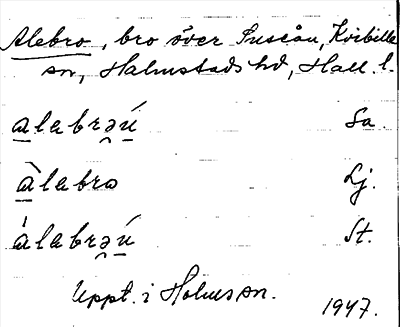 Alebro, bro över Suseån, Kvibille
sn, Halmstads hd, Hall. l.
a̲labrə̯ú̲ Sa.
à̲labro Lj.
á̲labrə̯ú̲ St.
Uppt. i Holms sn. 1947.